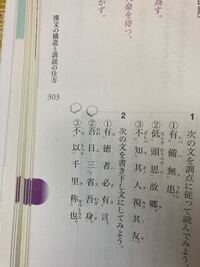 為す。
命を待つ。
かず。
1 次の文を訓点に従って読んでみよう。
① 有備無患。
② 低頭思故郷。
③ 不知其人視其友。
2 次の文を書き下し文にしてみよう。
① 有徳者必有言。
② 吾日三省吾身。
③ 不以千里称也。
漢文の構造と訓読の仕方
303